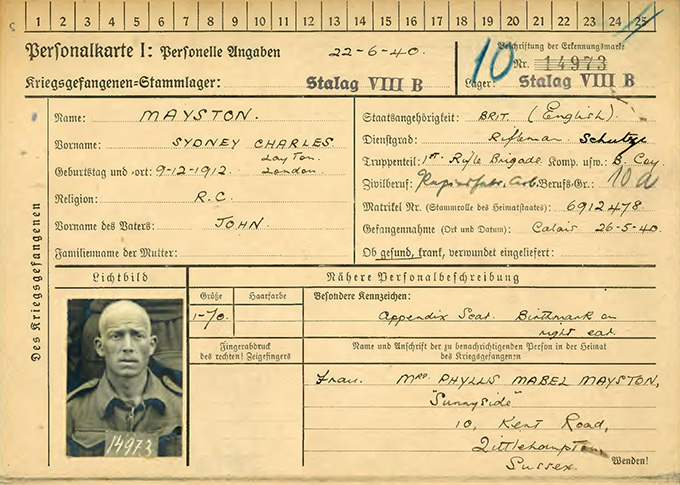 1 2 3 4 5 6 7 8 9 10 11 12 13 14 15 16 17 18 19 20 21 22 23 24 25
Personalkarte I: Personelle Angaben
22-6-40.
Kriegsgefangenen-Stammlager: Stalag VIII B
10
Beschriftung der Erkennungsmarke
Nr. 14973
Lager: Stalag VIII B
Des Kriegsgefangenen
Name: MAYSTON.
Vorname: SYDNEY CHARLES
Layton.
Geburtstag und -ort: 9-12-1912. London.
Religion: R.C.
Vorname des Vaters: JOHN.
Familienname der Mutter:
Staatsangehörigkeit: BRIT. (English).
Dienstgrad: Rifleman Schutze
Truppenteil: 1st Rifle Brigade Komp. usw.: B. Coy
Zivilberuf: Papierfabr. Arb. Berufs-Gr.: 10a
Matrikel Nr. (Stammrolle des Heimatstaates): 6912478.
Gefangennahme (Ort und Datum): Calais 26-5-40.
Ob gesund, krank, verwundet eingeliefert:
Lichtbild
14973
Nähere Personalbeschreibung
Größe Haarfarbe
1-70.
Besondere Kennzeichen:
Appendix Scar. Birthmark on
right ear.
Fingerabdruck
des rechten! Zeigefingers
Name und Anschrift der zu benachrichtigenden Person in der Heimat
des Kriegsgefangenen
Frau. Mrs. PHYLLIS MABEL MAYSTON,
"Sunnyside"
10, Kent Road,
Littlehampton
Sussex.
Wenden!